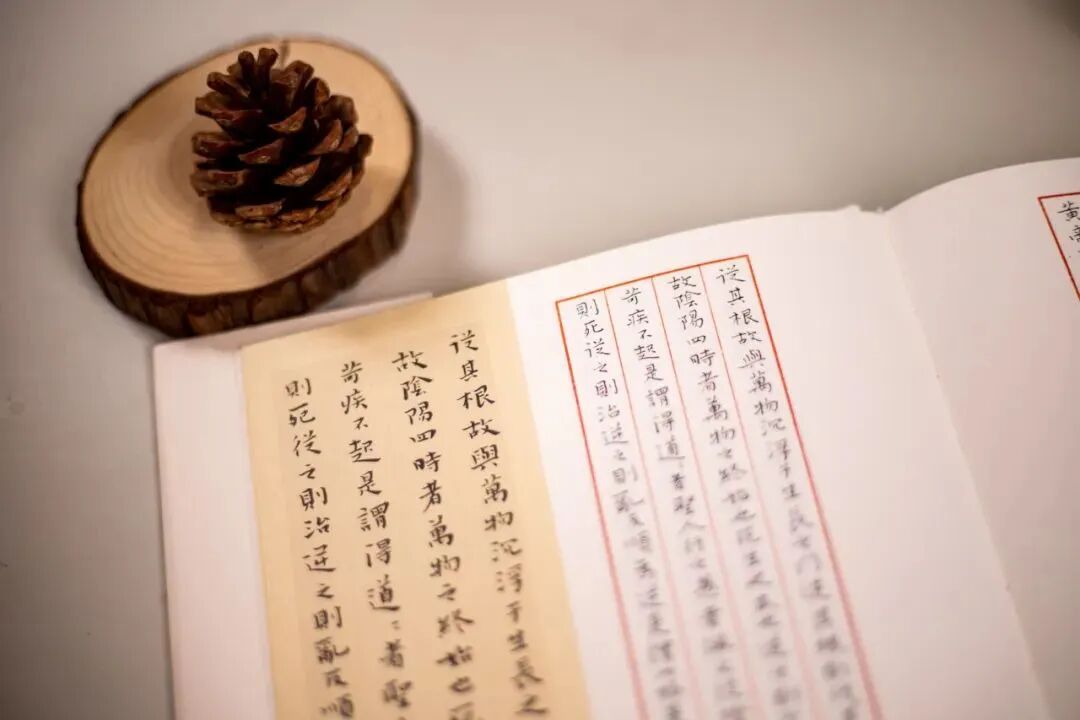 黃帝
從其根故與萬物沉浮于生長之門逆其根則
故陰陽四時者萬物之終始也死生之本也逆之則
苛疾不起是謂得道〻者聖人行之愚者佩之
則死從之則治逆之則亂反順為逆是謂內格
從其根故與萬物沉浮于生長之
故陰陽四時者萬物之終始也死
苛疾不起是謂得道〻者聖
則死從之則治逆之則亂反順